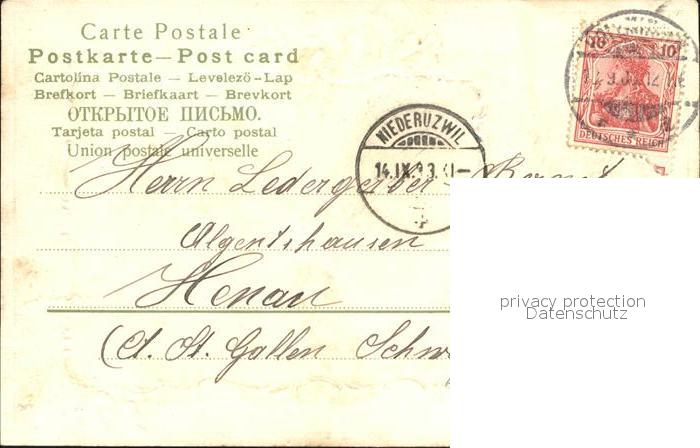 Carte Postale
Postkarte — Post card
Cartolina Postale — Levelező-Lap
Brefkort — Briefkaart — Brevkort
ОТКРЫТОЕ ПИСЬМО.
Tarjeta postal — Carto postal
Union postale universelle
10 10
DEUTSCHES REICH
NIEDERUZWIL
14.IX.
Herrn Ledergerber -
Algentshausen
Henau
(Ct. St. Gallen Schw
privacy protection
Datenschutz